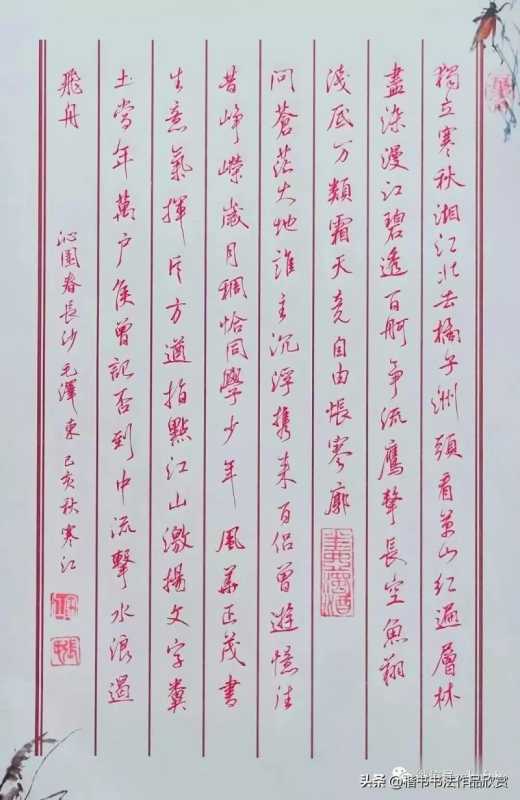 獨立寒秋湘江北去橘子洲頭看萬山红遍層林
盡染漫江碧透百舸争流鷹擊長空魚翔
淺底万類霜天竞自由悵寥廓
问蒼茫大地誰主沉浮携来百侣曾遊憶往
昔崢嶸歲月稠恰同學少年風華正茂書
生意氣揮斥方遒指點江山激揚文字糞
土當年萬户侯曾記否到中流擊水浪遏
飛舟 沁園春長沙毛澤東己亥秋寒江
头条 @楷书书法作品欣赏